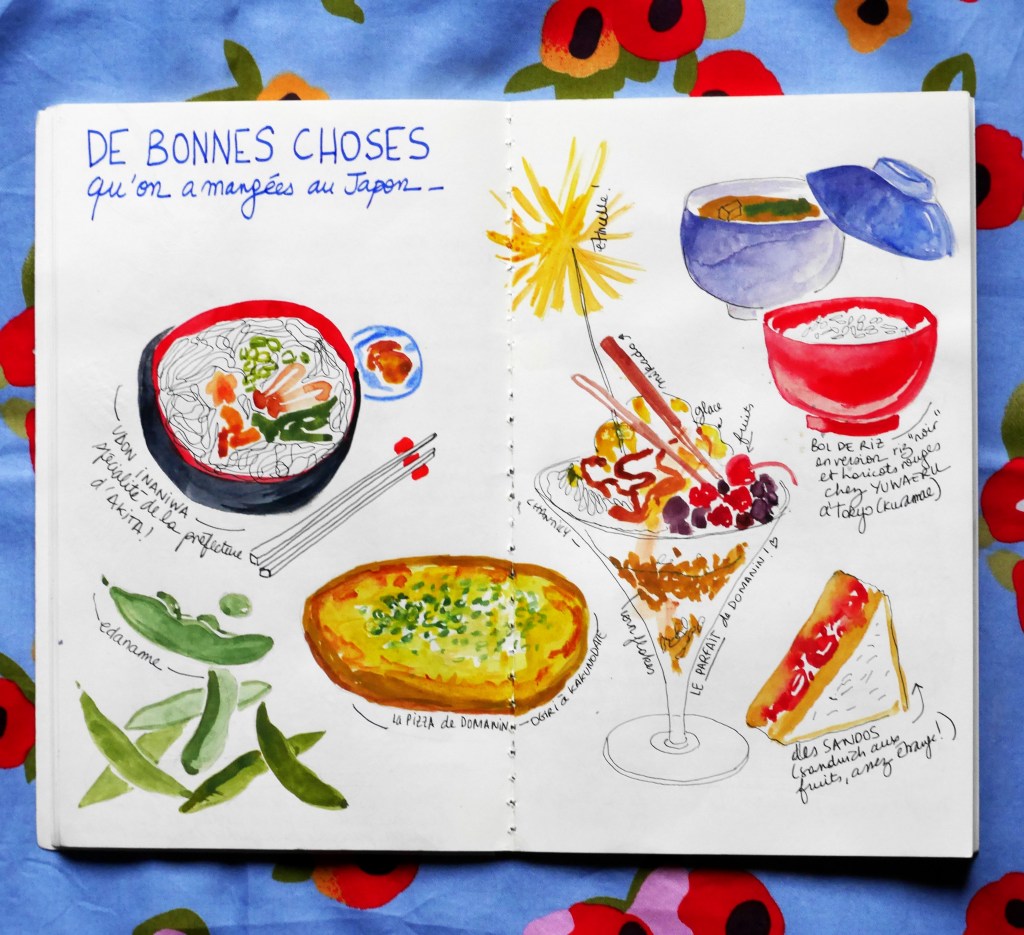 DE BONNES CHOSES
qu'on a mangées au Japon_
UDON INANIWA
spécialité de la préfecture
d'AKITA!
edaname
LA PIZZA de DOMANIN - OGIRI à KAKUNODATE
étincelle!
mikado
glace
fruits
CHANTILLY
corn flakes
LE PARFAIT de DOMANIN! ♡
BOL DE RIZ
en version riz "noir"
et haricots rouges
chez YUWAERU
à Tokyo (Kuramae)
des SANDOS
(sandwich aux
fruits, assez étrange!)